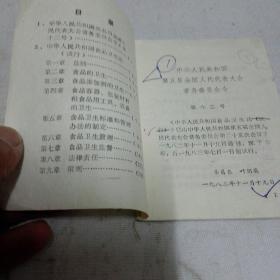 目录
1、中华人民共和国第五届全国人
民代表大会常务委员会令(第
十二号)
2、中华人民共和国食品卫生法
(试行)
第一章 总则
第二章 食品的卫生
第三章 食品添加剂的卫生
第四章 食品容器、包装材料
和食品用工具、设备
的卫生
第五章 食品卫生标准和管理
办法的制定
第六章 食品卫生管理
第七章 食品卫生监督
第八章 法律责任
第九章 附则
中华人民共和国
第五届全国人民代表大会
常务委员会令
第十二号
《中华人民共和国食品卫生法(试
行)》已由中华人民共和国第五届全国人
民代表大会常务委员会第二十五次会议于
一九八二年十一月十九日通过,现予公
布,自一九八三年七月一日起试行。
委员长 叶剑英
一九八二年十一月十九日